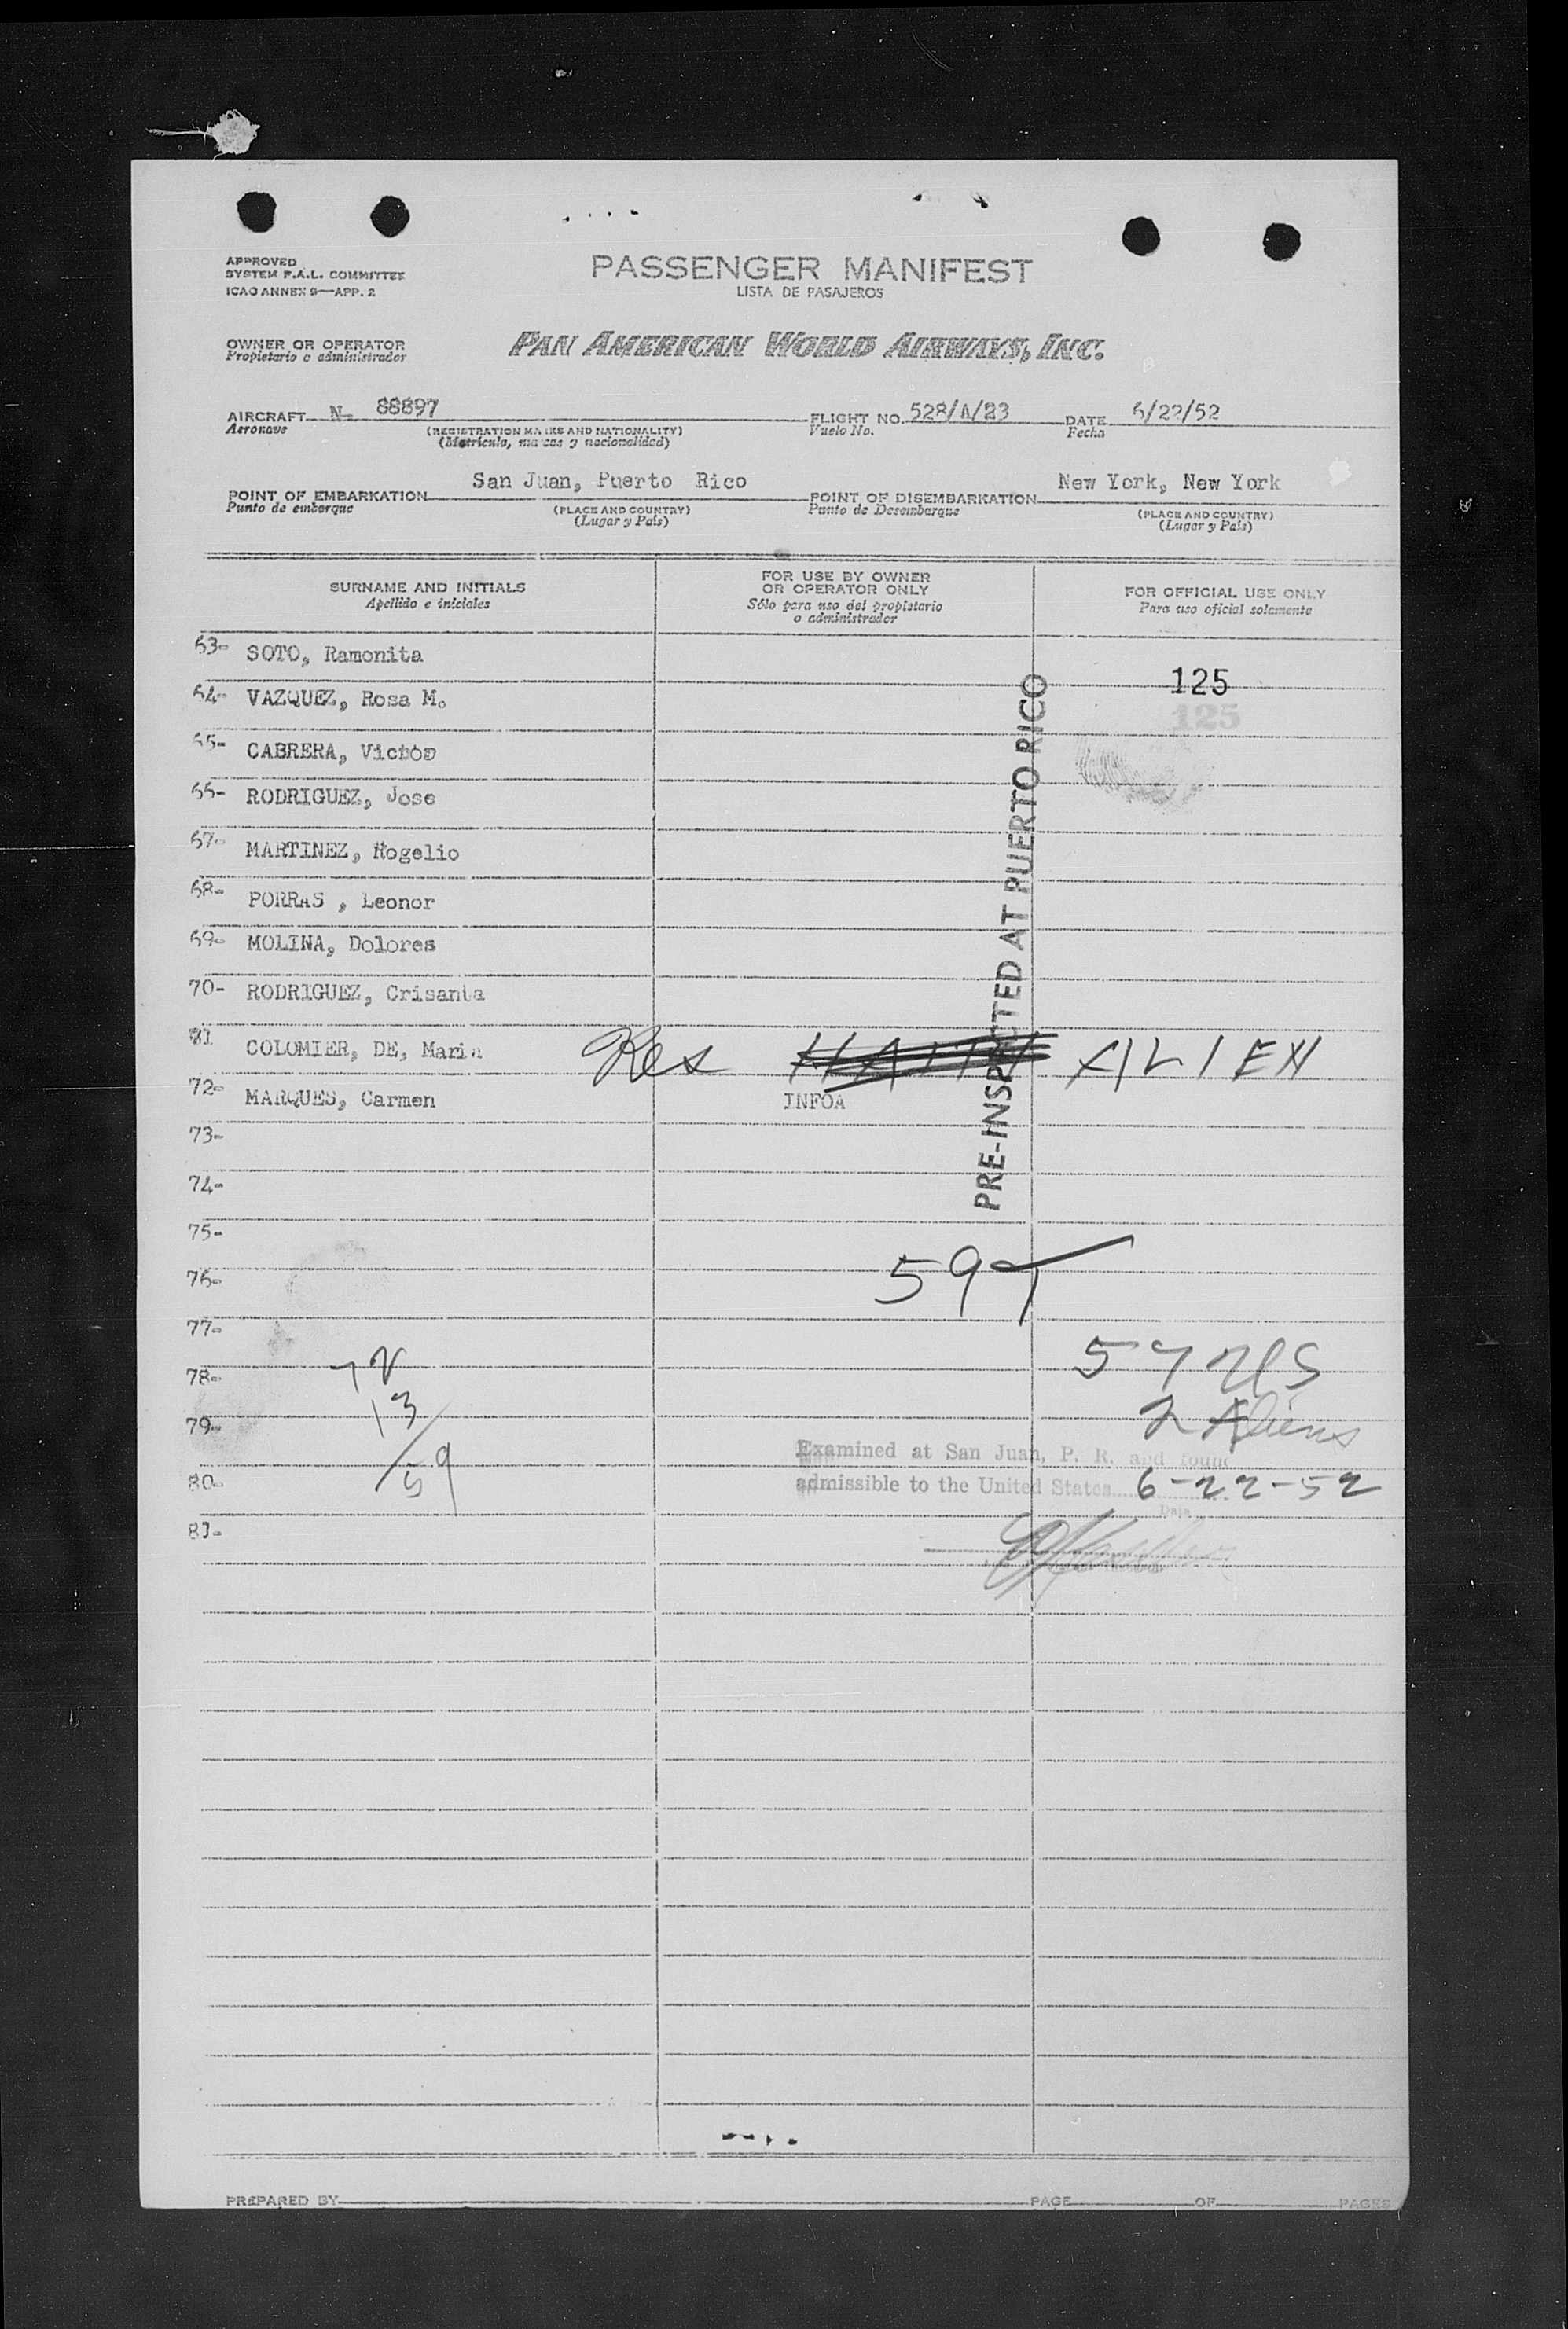 APPROVED
SYSTEM F.A.L. COMMITTEE
ICAO ANNEX 9—APP. 2
PASSENGER MANIFEST
LISTA DE PASAJEROS
OWNER OR OPERATOR
Propietario o administrador
PAN AMERICAN WORLD AIRWAYS, INC.
AIRCRAFT N- 88897 FLIGHT NO. 528/A/23 DATE 6/22/52
Aeronave (REGISTRATION MARKS AND NATIONALITY) Vuelo No. Fecha
(Matrícula, marcas y nacionalidad)
POINT OF EMBARKATION San Juan, Puerto Rico POINT OF DISEMBARKATION New York, New York
Punto de embarque (PLACE AND COUNTRY) Punto de Desembarque (PLACE AND COUNTRY)
(Lugar y País) (Lugar y País)
SURNAME AND INITIALS
Apellido e iniciales
FOR USE BY OWNER
OR OPERATOR ONLY
Sólo para uso del propietario
o administrador
FOR OFFICIAL USE ONLY
Para uso oficial solamente
63- SOTO, Ramonita
125
64- VAZQUEZ, Rosa M.
125
65- CABRERA, Victor
66- RODRIGUEZ, Jose
67- MARTINEZ, Rogelio
68- PORRAS , Leonor
69- MOLINA, Dolores
70- RODRIGUEZ, Crisanta
PRE-INSPECTED AT PUERTO RICO
COLOMIER, DE, Maria Res ALIEN
72- MARQUES, Carmen INFOA
73-
74-
75-
76- 59
77-
78- 72 57 US
79- 13 2 Aliens
Examined at San Juan, P. R. and found
80- 59 admissible to the United States 6-22-52
Date
81-
PREPARED BY PAGE OF PAGES